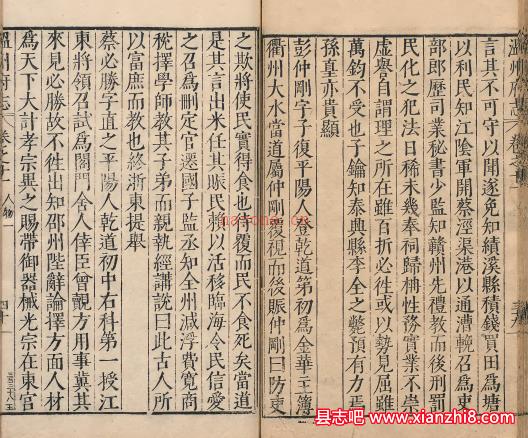 言其不可守以聞遂免知績溪縣積錢買田為塘
以利民知江陰軍開蔡涇渠港以通漕輓召為吏
部郎歷司業秘書少監知贛州先禮教而後刑罰
民化之犯法日稀未幾奉祠歸柟性務實業不崇
虛譽自謂理之所在雖百折必徃或以勢見屈雖
萬鈞不受也子鑰知泰興縣李全之斃預有力焉
孫皇亦貴顯
彭仲剛字子復平陽人登乾道第初為金華主簿
衢州大水當道屬仲剛復視而後賑仲剛曰防吏
之欺將使民實得食也待覆而民不食死矣當道
是其言出米任其賑民賴以活移臨海令民信愛
之召為刪定官選國子監丞知全州減浮費寬商
稅擇學師教其子弟而親執經講說曰此古人所
以富庶而教也終浙東提舉
蔡必勝字直之平陽人乾道初中右科第一授江
東將領召試為閤門舍人倖臣曾覿方用事冀其
來見必勝故不徃出知邵州陛辭論擇方面人材
為天下大計孝宗異之賜帶御器械光宗在東宮
溫州府志
卷之十一
人物一
四十
www.xianzhi8.com
县志吧www.xianzhi8.com